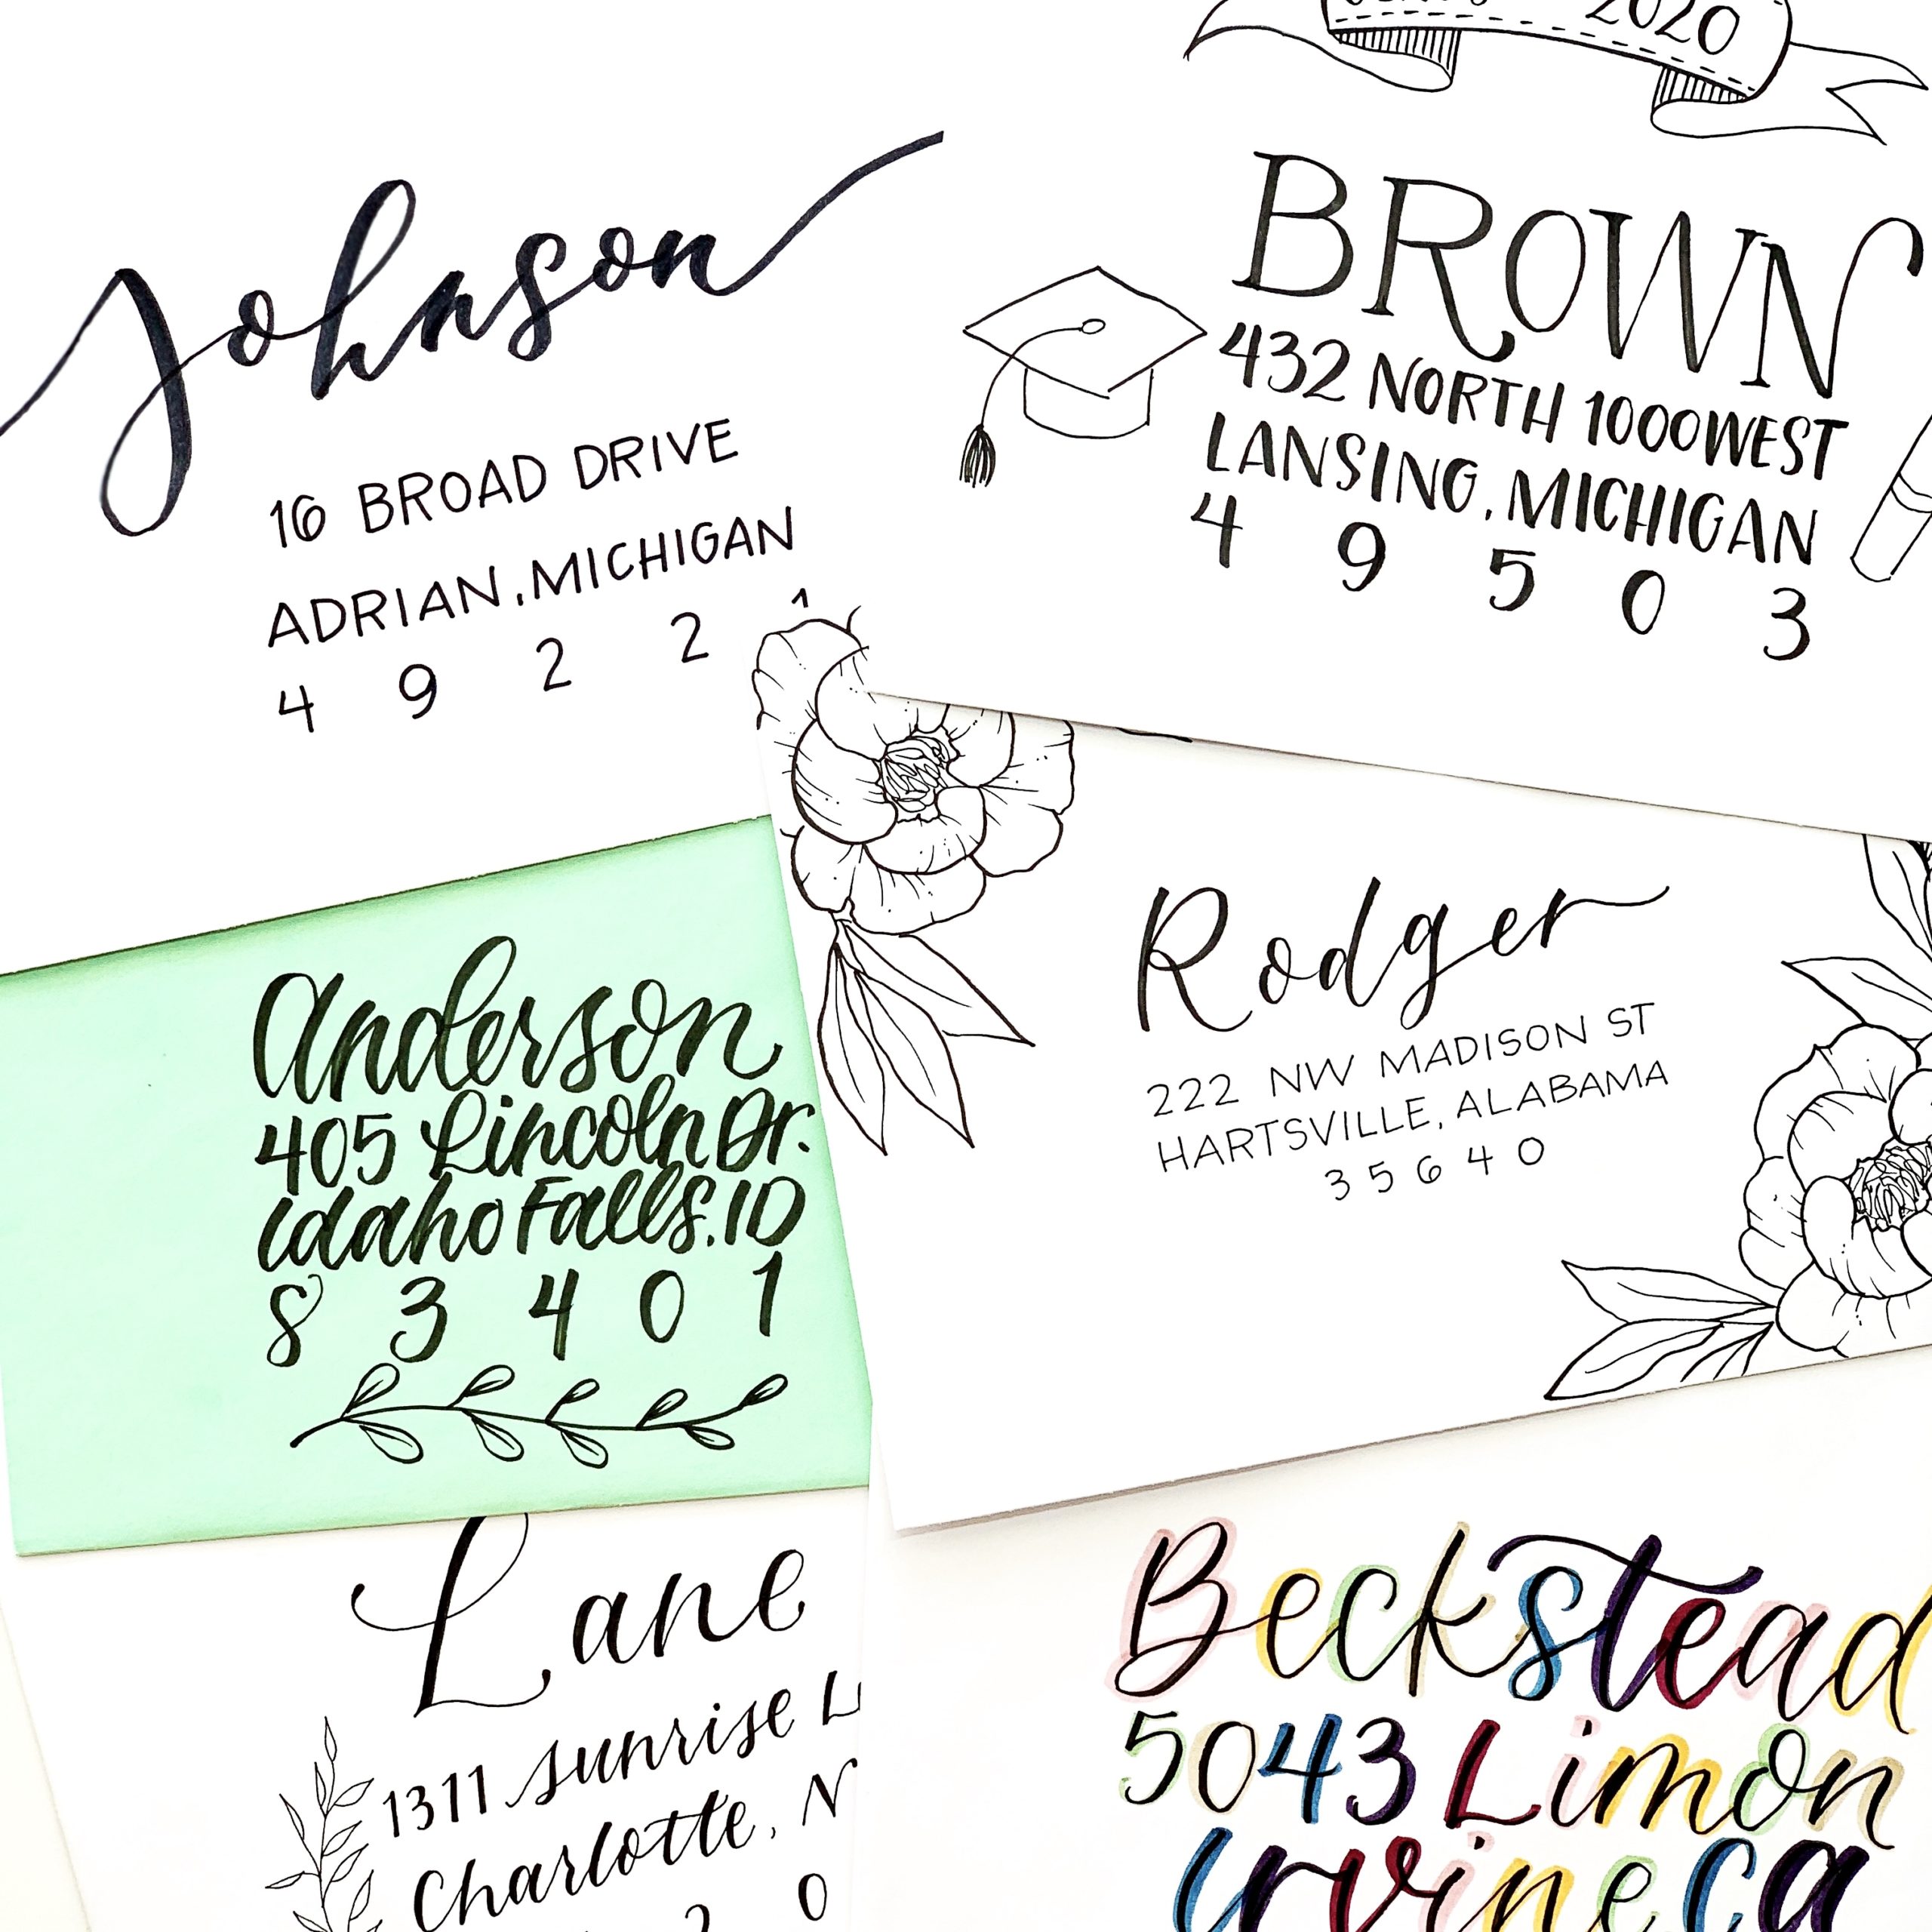 2020
Johnson
16 BROAD DRIVE
ADRIAN, MICHIGAN
4 9 2 2 1
BROWN
432 NORTH 1000 WEST
LANSING, MICHIGAN
4 9 5 0 3
Anderson
405 Lincoln Dr.
Idaho Falls, ID
8 3 4 0 1
Rodger
222 NW MADISON ST
HARTSVILLE, ALABAMA
3 5 6 4 0
Lane
1311 Sunrise L
Charlotte, N
2 0
Beckstead
5043 Limon
Irvine, Ca